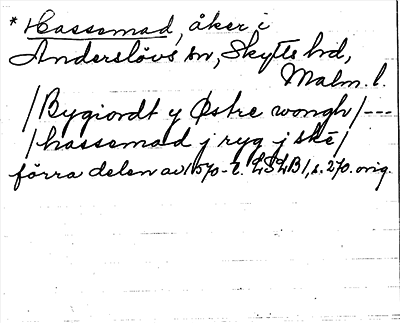 * Hassemad, åker i
Anderslövs sn, Skytts hd,
Malm. l.
/Bygiordt y Østre wongh/---
/hassemad j ryg j skè/
förra delen av 1570-t. LSLB 1, s. 270. orig.